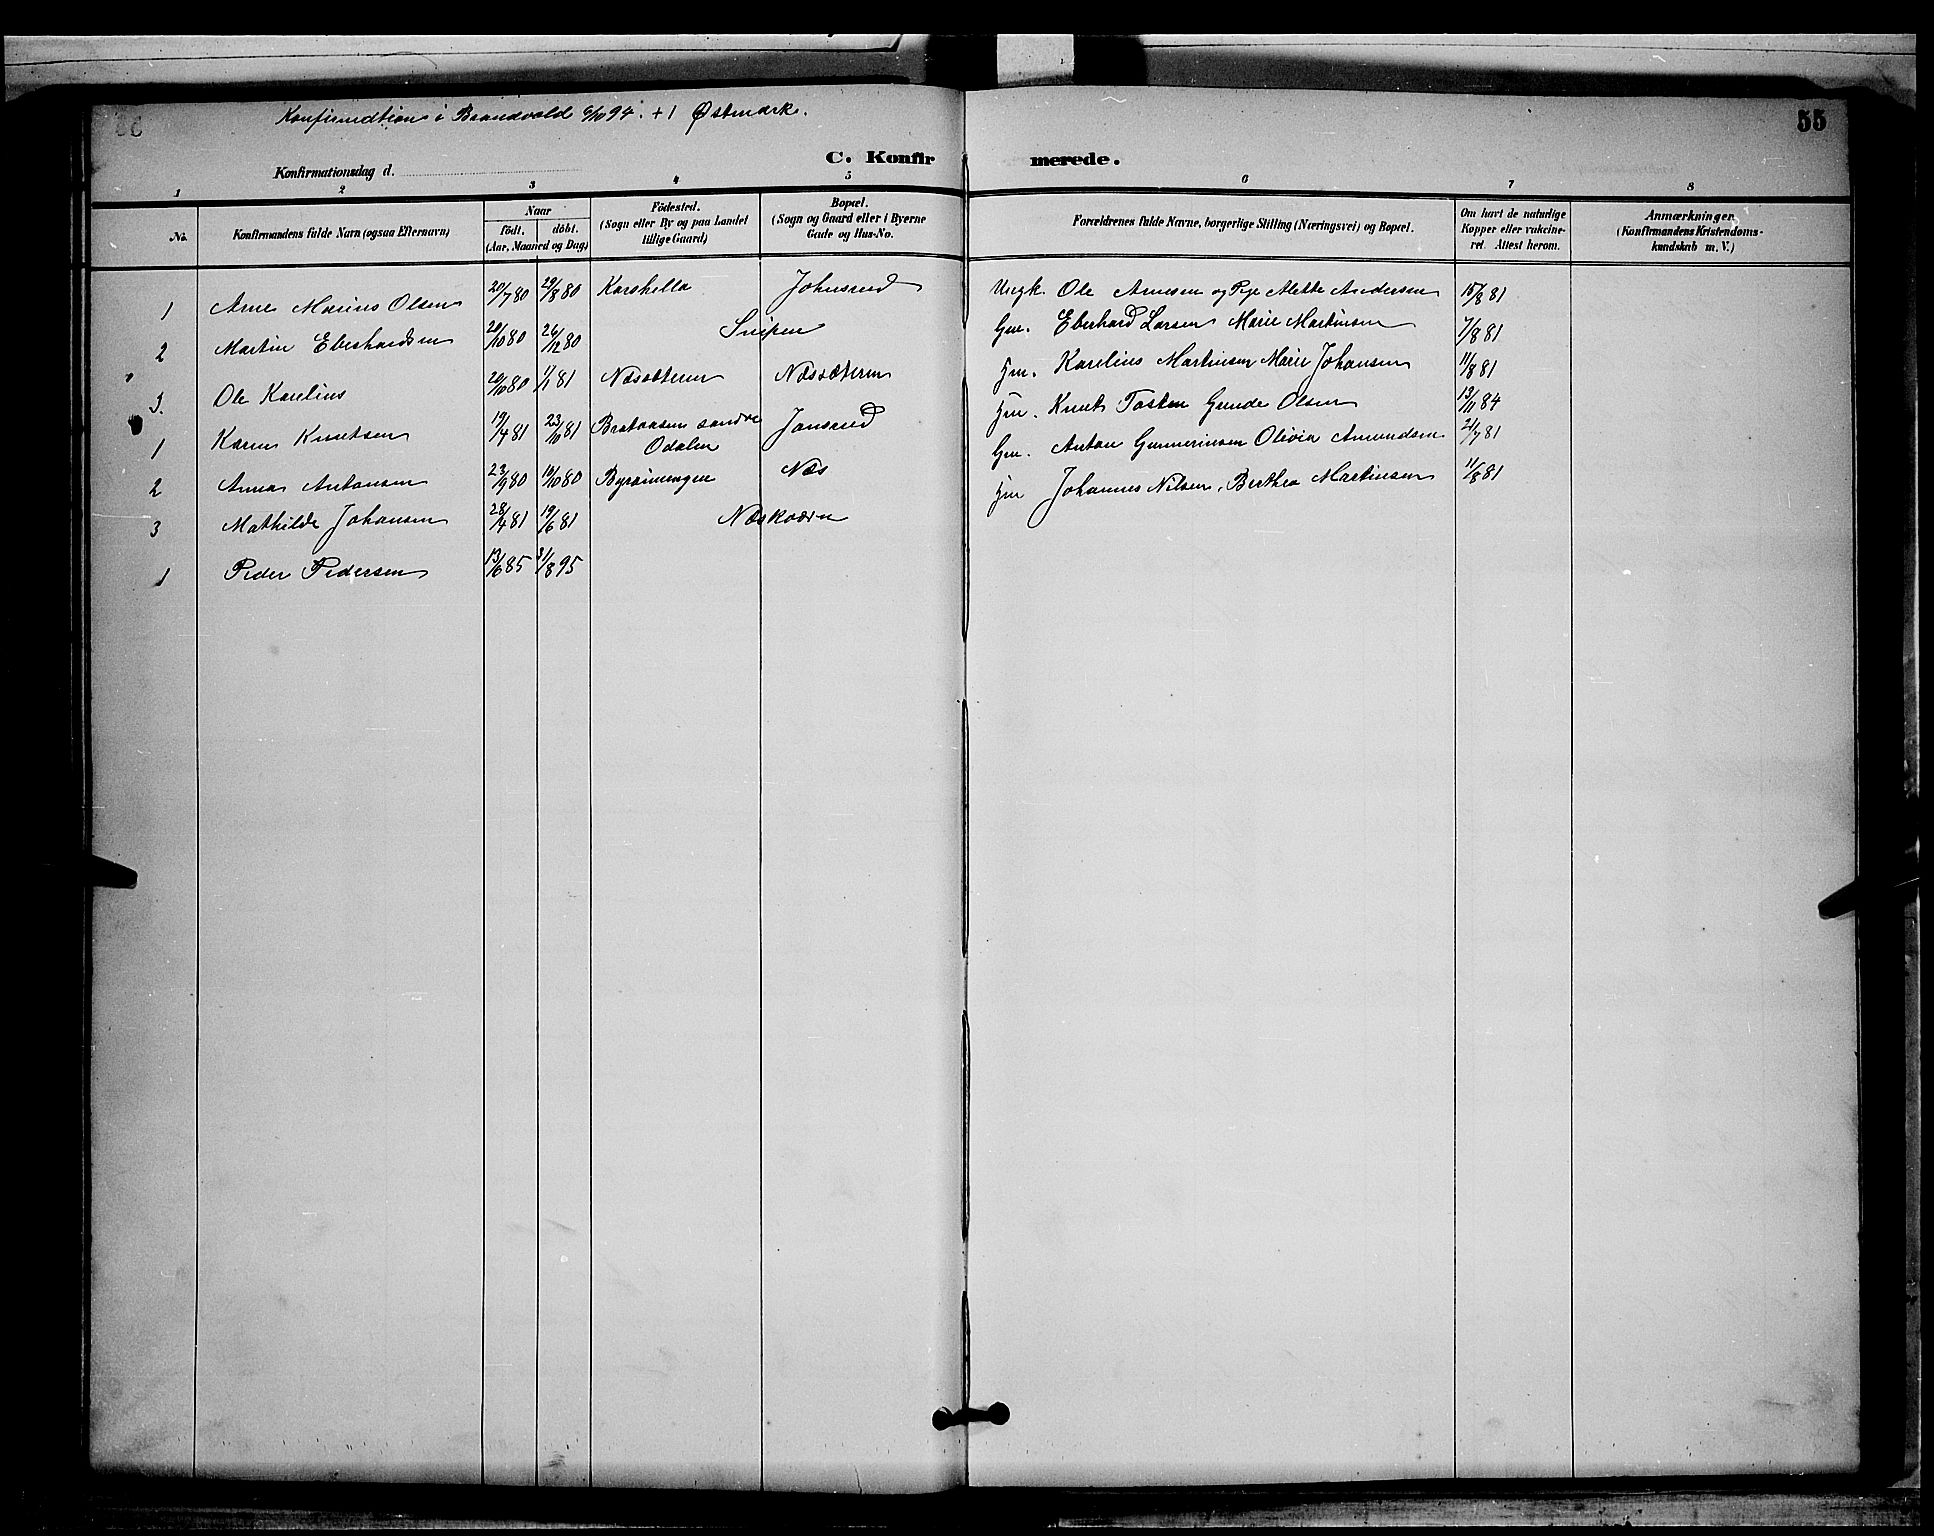 Konfirmation i Brandvold 6/10 94. + 1 Østmark.
55
C. Konfir merede.
Konfirmationsdag d.
1 2 3 4 5 6 7 8
No.
Konfirmandens fulde Navn (ogsaa Efternavn)
Naar
født. døbt.
(Aar, Maaned og Dag)
Fødested.
(Sogn eller By og paa Landet
tillige Gaard)
Bopæl.
(Sogn og Gaard eller i Byerne
Gade og Hus-No.
Forældrenes fulde Navne, borgerlige Stilling (Næringsvei) og Bopæl.
Om havt de naturlige
Kopper eller vakcine-
ret. Attest herom.
Anmærkninger
(Konfirmandens Kristendoms-
kundskab m. V.)
1 Arne Marius Olsen 20/7 80 29/8 80 Karshella Johnsrud Ungk. Ole Arnesen og Pige Alette Andersen 15/8 81
2 Martin Eberhardsen 20/10 80 26/12 80 Snipen Gm. Eberhard Larsen Marie Martinsen 7/8 81
3. Ole Karelius 20/10 80 1/1 81 Næssæteren Næssæteren Hm. Karelius Martinsen Marie Johansen 11/8 81
1 Karen Knutsen 19/4 81 23/10 81 Brataasen søndre Odalen Jansrud Hm. Knut Tosten Gunde Olsen 13/11 84
2 Anna Antonsen 23/9 80 10/10 80 Næs Gm. Anton Gunneriusen Olivia Amundsen 21/7 81
3 Mathilde Johansen 28/4 81 19/6 81 Næskværn Hm Johannes Nilsen, Berthea Martinsen 11/8 81
1 Peder Pedersen 13/6 85 31/8 95